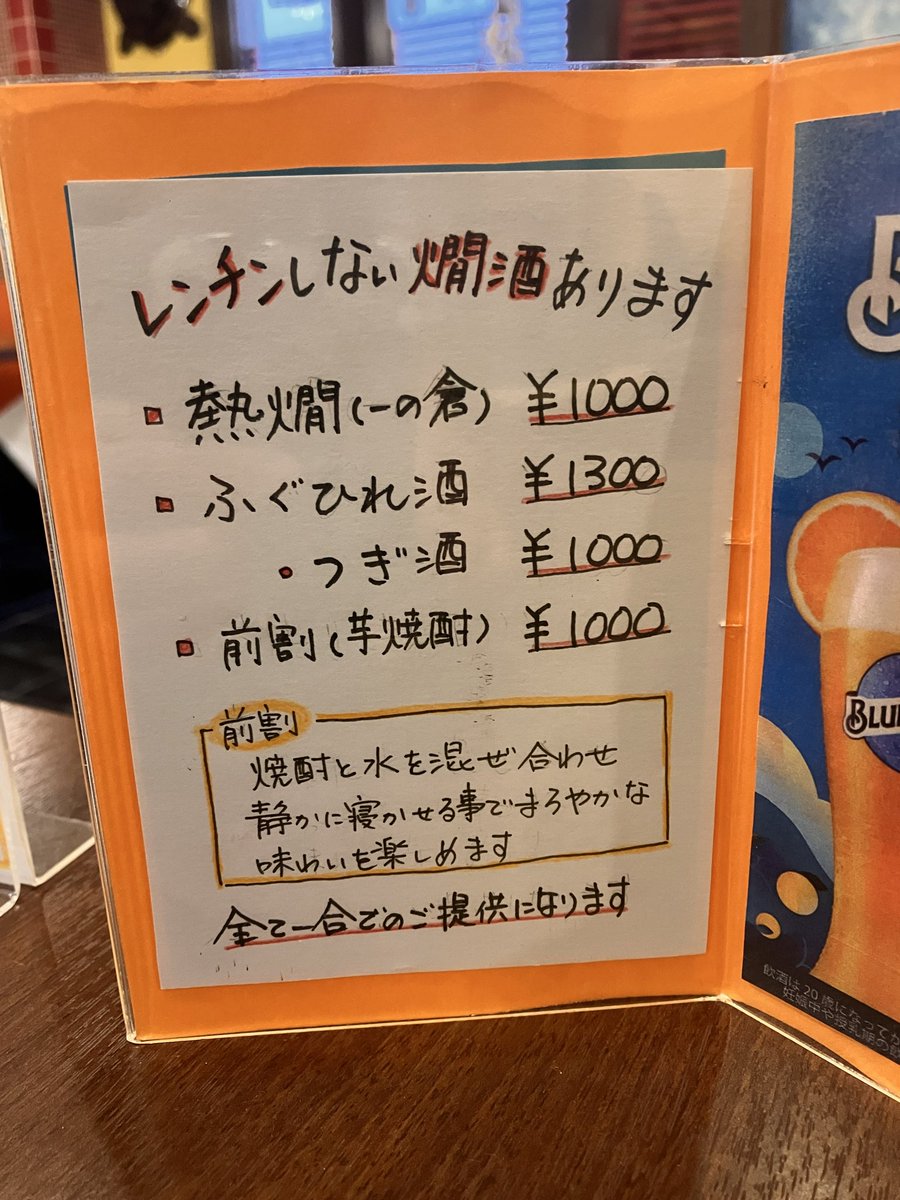 レンチンしない燗酒あります
熱燗(一の倉) ¥1000
ふぐひれ酒 ¥1300
・つぎ酒 ¥1000
前割(芋焼酎) ¥1000
前割
焼酎と水を混ぜ合わせ
静かに寝かせる事でまろやかな
味わいを楽しめます
全て一合でのご提供になります
BLU
飲酒は20歳になってか
妊娠中や授乳期の飲